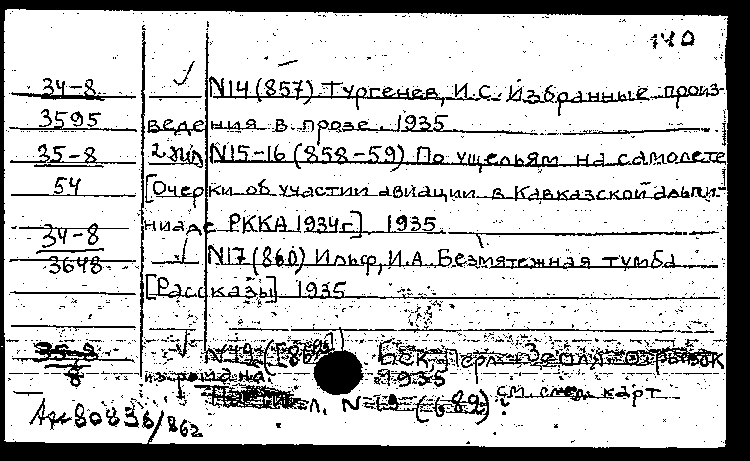 140
34-8 √ N14 (857) Тургенев, И.С. Избранные произ-
3595 ведения в прозе. 1935
35-8 2 экз N15-16 (858-59) По ущельям на самолете
54 [Очерки об участии авиации в Кавказской альпи-
ниаде РККА 1934г]. 1935.
34-8 √ N17 (860) Ильф, И.А. Безмятежная тумба
3648 [Рассказы] 1935
35-8 √ N19 Бек, Перл Земля отрывок
8 из романа. 1935
л. N 19 (689) см. след. карт
80836/862